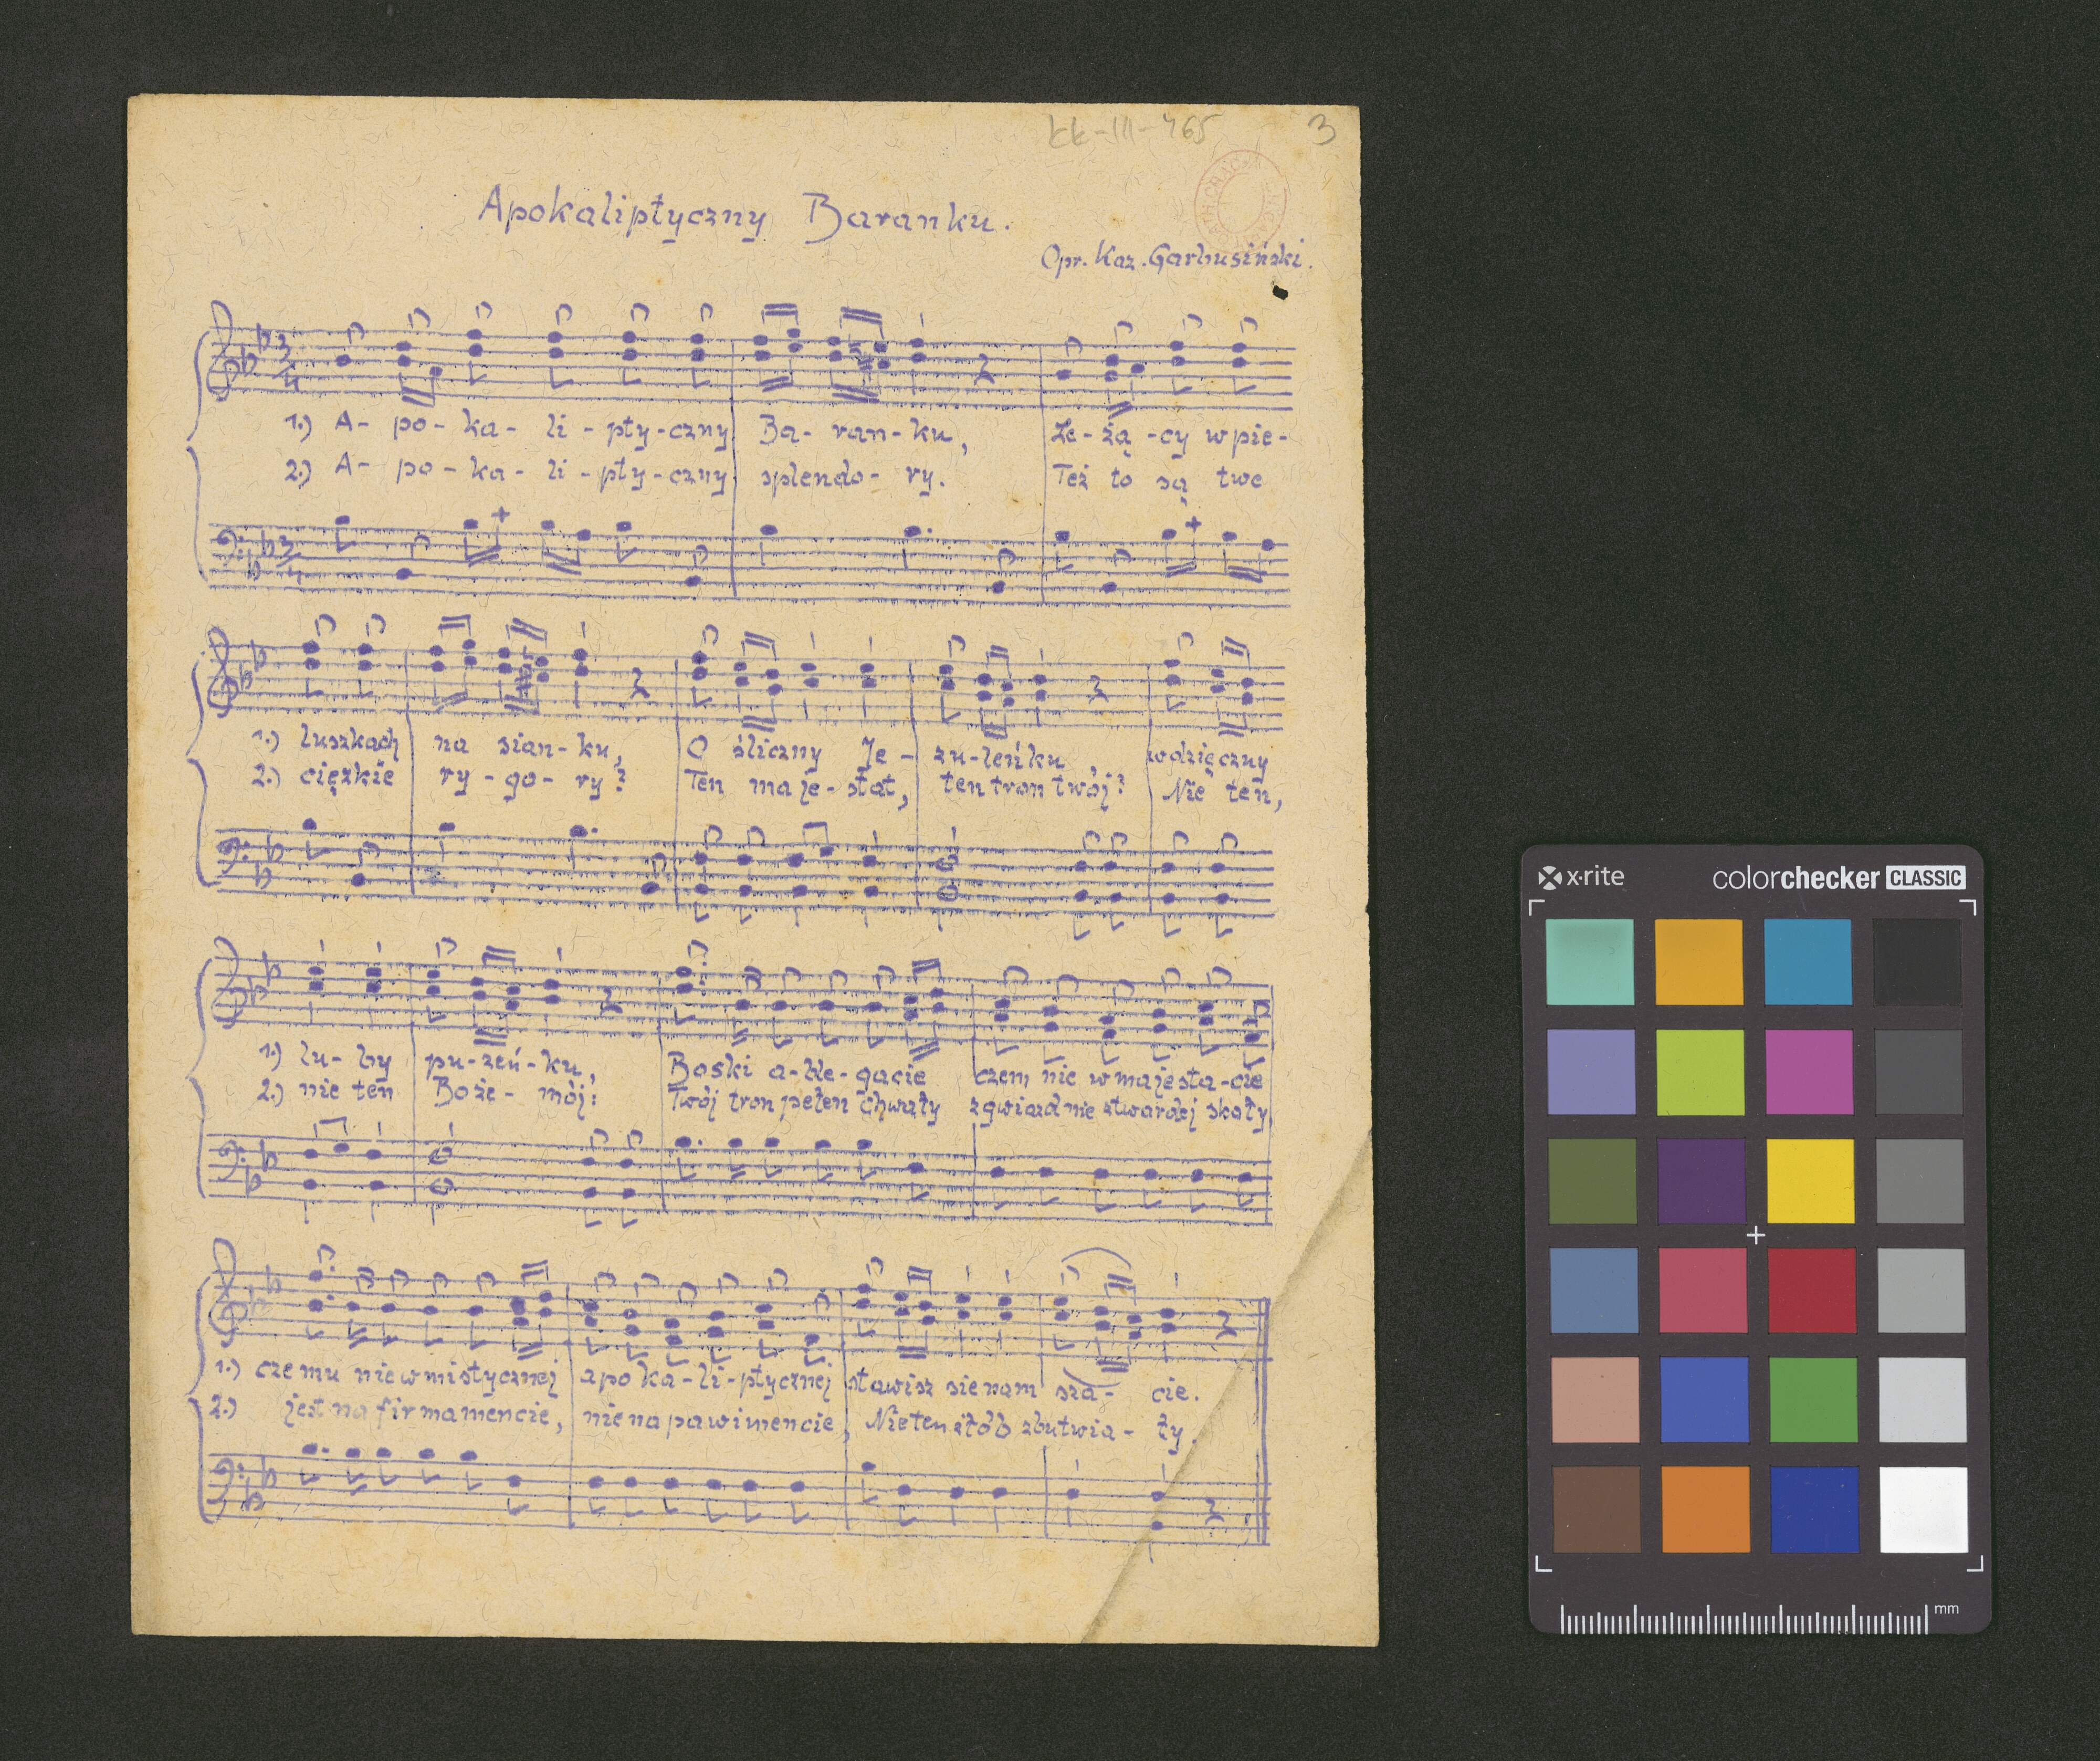 KK-III-465 3
Apokaliptyczny Baranku.
Opr. Kaz. Garbusiński.
3/4
1.) A- po- ka- li- pty-czny Ba- ran-ku, Le-żą-cy w pie-
2.) A- po-ka-li-pty-czny splendo- ry. Też to są twe
3/4
1.) luszkach na sian-ku, O śliczny Je- zu-leńku, wdzięczny
2.) ciężkie ry-go-ry? Ten maje-stat, ten tron twój? Nie ten,
1.) lu-by pu-zeń-ku, Boski a-ble-gacie czem nie w majesta-cie
2.) nie ten Boże- mój: Twój tron pełen chwały z gwiazd nie z twardej skały,
1.) czemu nie w mistycznej apoka-li-ptycznej stawisz sie nam sza- cie.
2.) jest na firmamencie, nie na pawimencie, Nie ten żłób zbutwia- ły.
x·rite colorchecker CLASSIC
mm